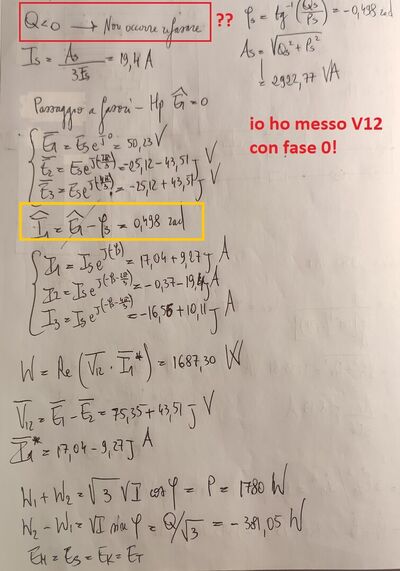 Q<0 → Non occorre rifasare
??
φs = tg⁻¹(Qs/Ps) = -0,498 rad
As = √(Qs² + Ps²) = 2922,77 VA
Is = As / 3Es = 19,4 A
io ho messo V12
con fase 0!
Passaggio a fasori - Hp Ê1 = 0
E1 = Es e^j0 = 50,23 V
E2 = Es e^j(-2π/3) = -25,12 - 43,51 j V
E3 = Es e^j(-4π/3) = -25,12 + 43,51 j V
Î1 = Ê1 - φs = 0,498 rad
I1 = Is e^j(-φ) = 17,04 + 9,27 j A
I2 = Is e^j(-φ-2π/3) = -0,37 - 19,4 j A
I3 = Is e^j(-φ-4π/3) = -16,55 + 10,11 j A
W = Re (V12 · I1*) = 1687,30 W
V12 = E1 - E2 = 75,35 + 43,51 j V
I1* = 17,04 - 9,27 j A
W1 + W2 = √3 VI cos φ = P = 1780 W
W2 - W1 = VI sin φ = Q/√3 = -381,05 W
EH = ES = EK = ET